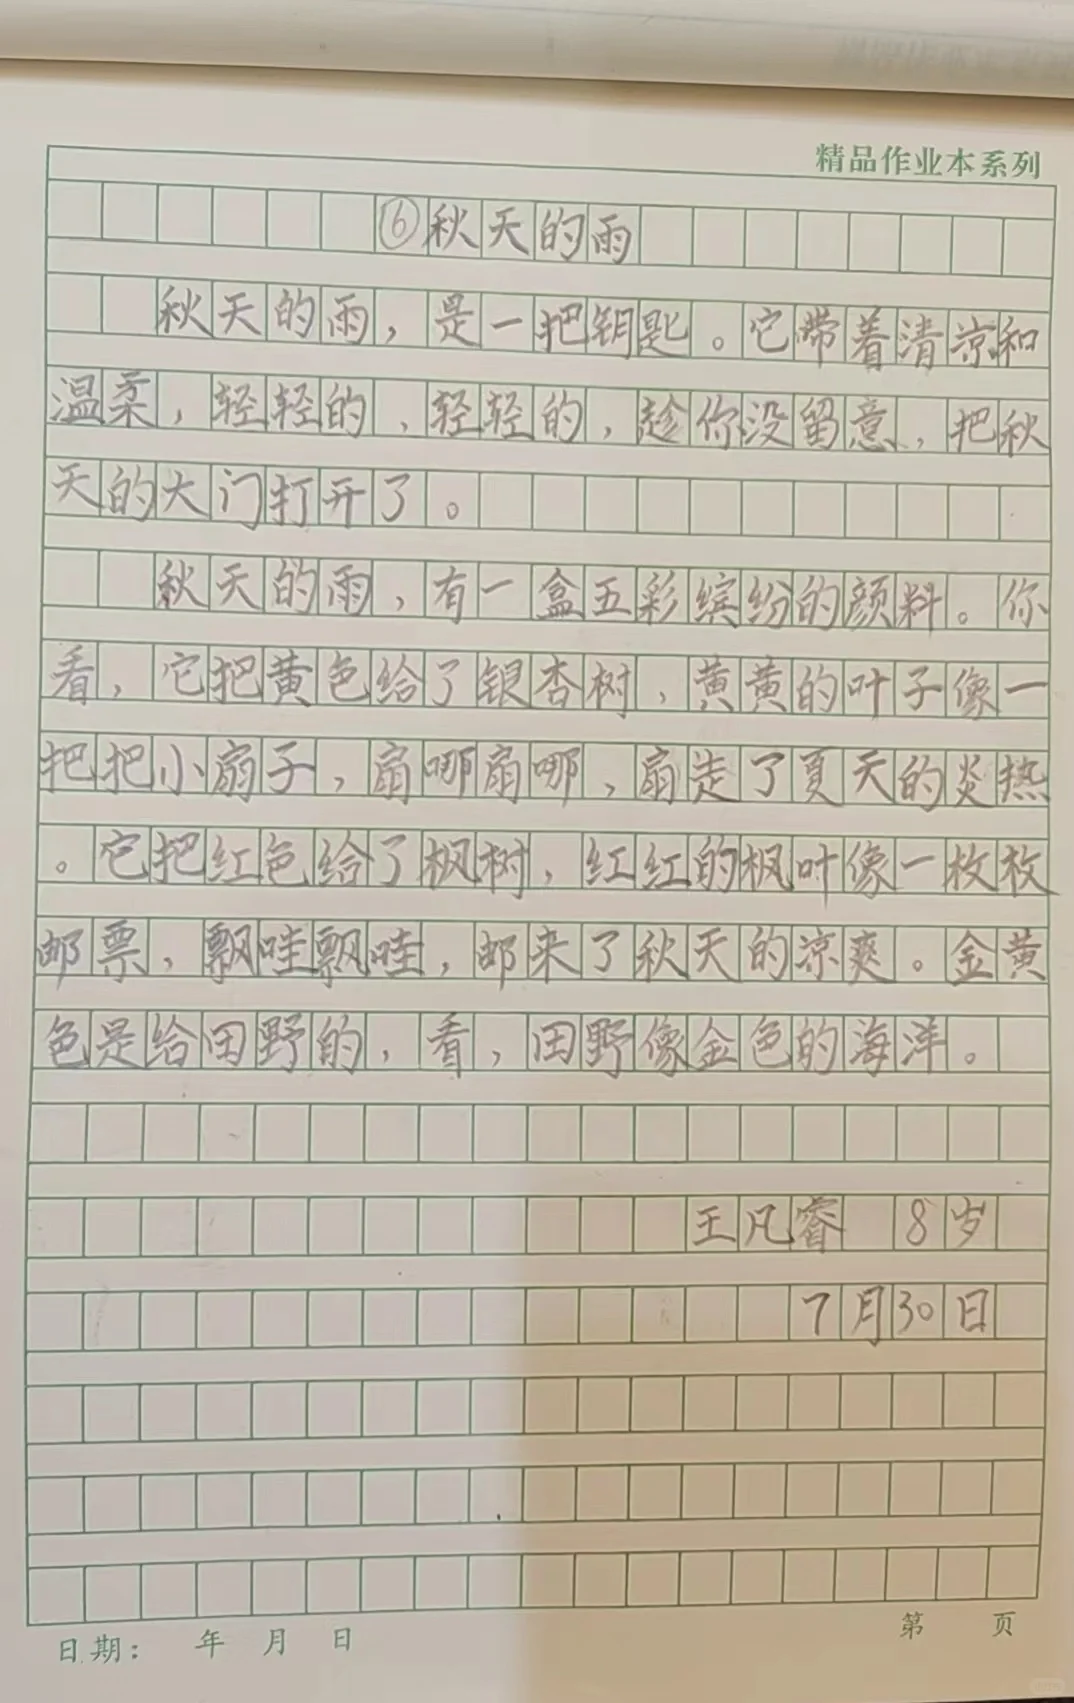 精品作业本系列
⑥秋天的雨
秋天的雨，是一把钥匙。它带着清凉和
温柔，轻轻的，轻轻的，趁你没留意，把秋
天的大门打开了。
秋天的雨，有一盒五彩缤纷的颜料。你
看，它把黄色给了银杏树，黄黄的叶子像一
把把小扇子，扇哪扇哪，扇走了夏天的炎热
。它把红色给了枫树，红红的枫叶像一枚枚
邮票，飘哇飘哇，邮来了秋天的凉爽。金黄
色是给田野的，看，田野像金色的海洋。
王凡睿 8岁
7月30日
日期： 年 月 日
第 页